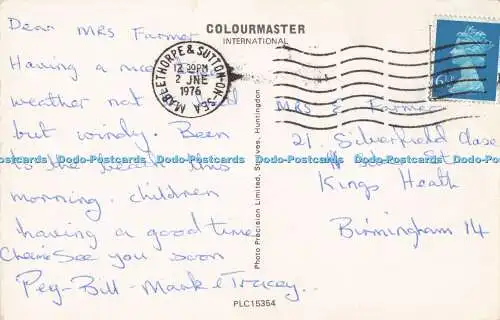 Dear MRS Farmer
Having a nice
weather not
but windy. Been
to the beach this
morning. children
having a good time
Cheerio See you soon
Peg-Bill-Mark & Tracey.
COLOURMASTER
INTERNATIONAL
MABLETHORPE & SUTTON-ON-SEA
12.30PM
2 JNE
1976
6½P
MRS E Farmer
21. Silverfield Close
Kings Heath
Birmingham 14
Photo Precision Limited, St. Ives, Huntingdon
PLC15354
Dodo-Postcards Dodo-Postcards Dodo-Postcards Dodo-Postcards Dodo-Postcards Dodo-Postcards